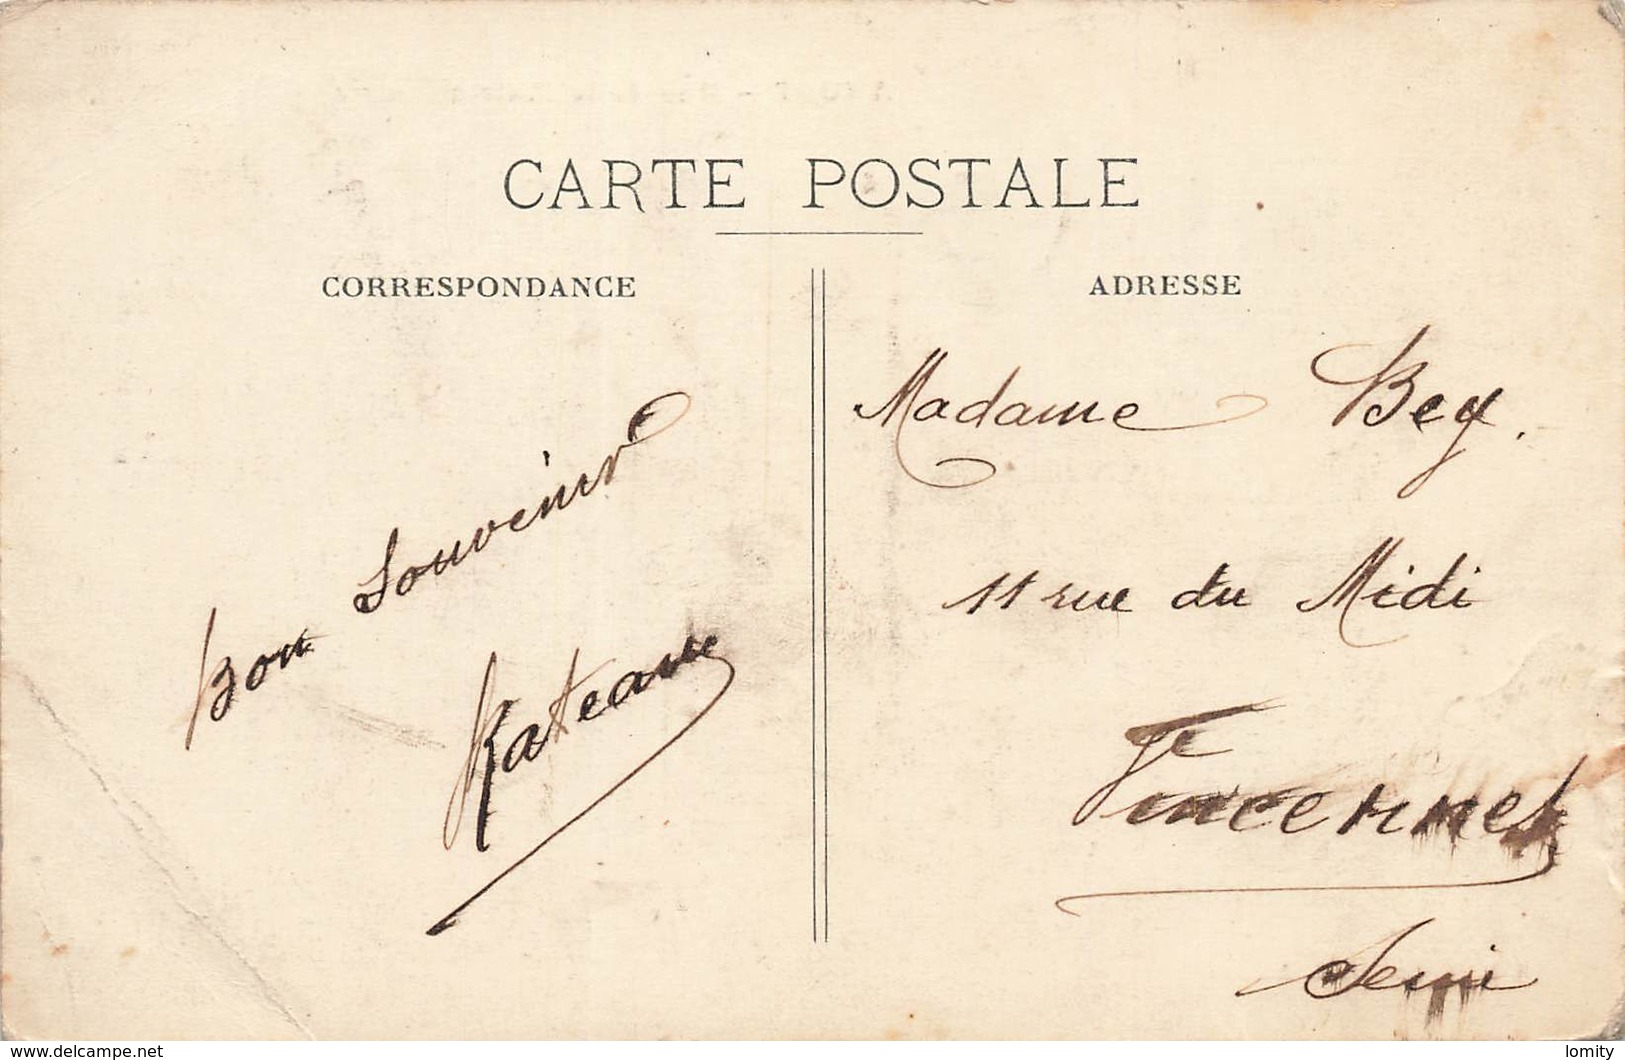 CARTE POSTALE
CORRESPONDANCE
Bon Souvenir
Rateau
ADRESSE
Madame Bey.
11 rue du Midi
Vincennes
Seine
delcampe.net
lomity